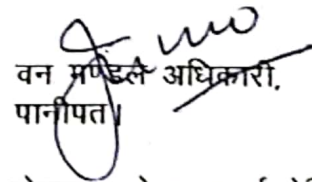 वन मण्डल अधिकारी,
पानीपत।